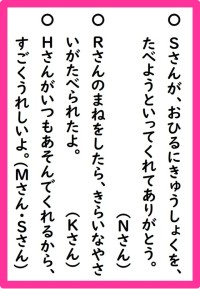 ○Sさんが、おひるにきゅうしょくを、
たべようといってくれてありがとう。
(Nさん)
○Rさんのまねをしたら、きらいなやさ
いがたべられたよ。 (Kさん)
○Hさんがいつもあそんでくれるから、
すごくうれしいよ。(Mさん・Sさん)